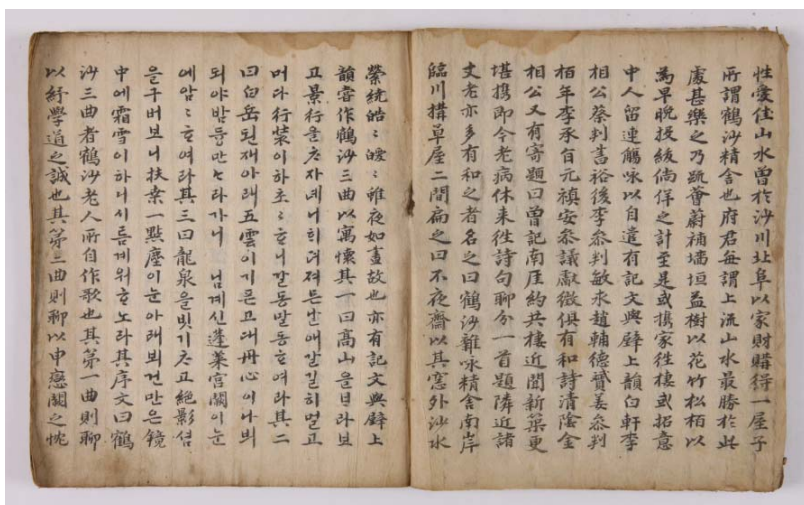 性愛佳山水曾於沙川北阜以家財購得一屋子
所謂鶴沙精舍也府君每謂上流山水最勝於此
處甚樂之乃疏薈蔚補墻垣益樹以花竹松栢以
為早晩投紱徜徉之計至是或携家徃棲或招意
中人留連觴咏以自遣有記文與壁上韻白軒李
相公蔡判書裕後李叅判敏求趙輔德贇姜叅判
栢年李承旨元禎安叅議獻徵俱有和詩清陰金
相公又有寄題曰曾記南厓約共棲近聞新築更
堪携即今老病休来徃詩句聊分一首題隣近諸
丈老亦多有和之者名之曰鶴沙雜咏精舍南岸
臨川搆草屋二間扁之曰不夜齋以其窓外沙水
縈統皓〻皧〻雖夜如晝故也亦有記文與壁上
韻嘗作鶴沙三曲以寓懷其一曰高山을ᄇᆞ라보
고景行을ᄎᆞ자녜니히져져믄날애갈길히멀고
머다行装이하초〻ᄒᆞ니갈동말동ᄒᆞ여라其二
曰白岳된재아래五雲이기픈고대丹心이나뵈
되야밤듕만ᄂᆞ라가니 님계신蓬萊宮闕이눈
에암〻ᄒᆞ여라其三曰龍泉을빗기ᄎᆞ고絶影셤
을구버보니扶桑一點塵이눈아래뵈건만은鏡
中에霜雪이하니시름계워ᄒᆞ노라其序文曰鶴
沙三曲者鶴沙老人所自作歌也其第一曲則聊
以紓學道之誠也其第二曲則聊以申戀闕之忱